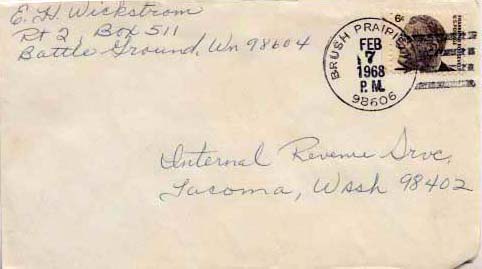 E. H. Wickstrom
Rt 2, Box 511
Battle Ground, Wn 98604
BRUSH PRAIRIE
FEB
7
1968
P.M.
98606
6¢
Internal Revenue Srvc,
Tacoma, Wash 98402